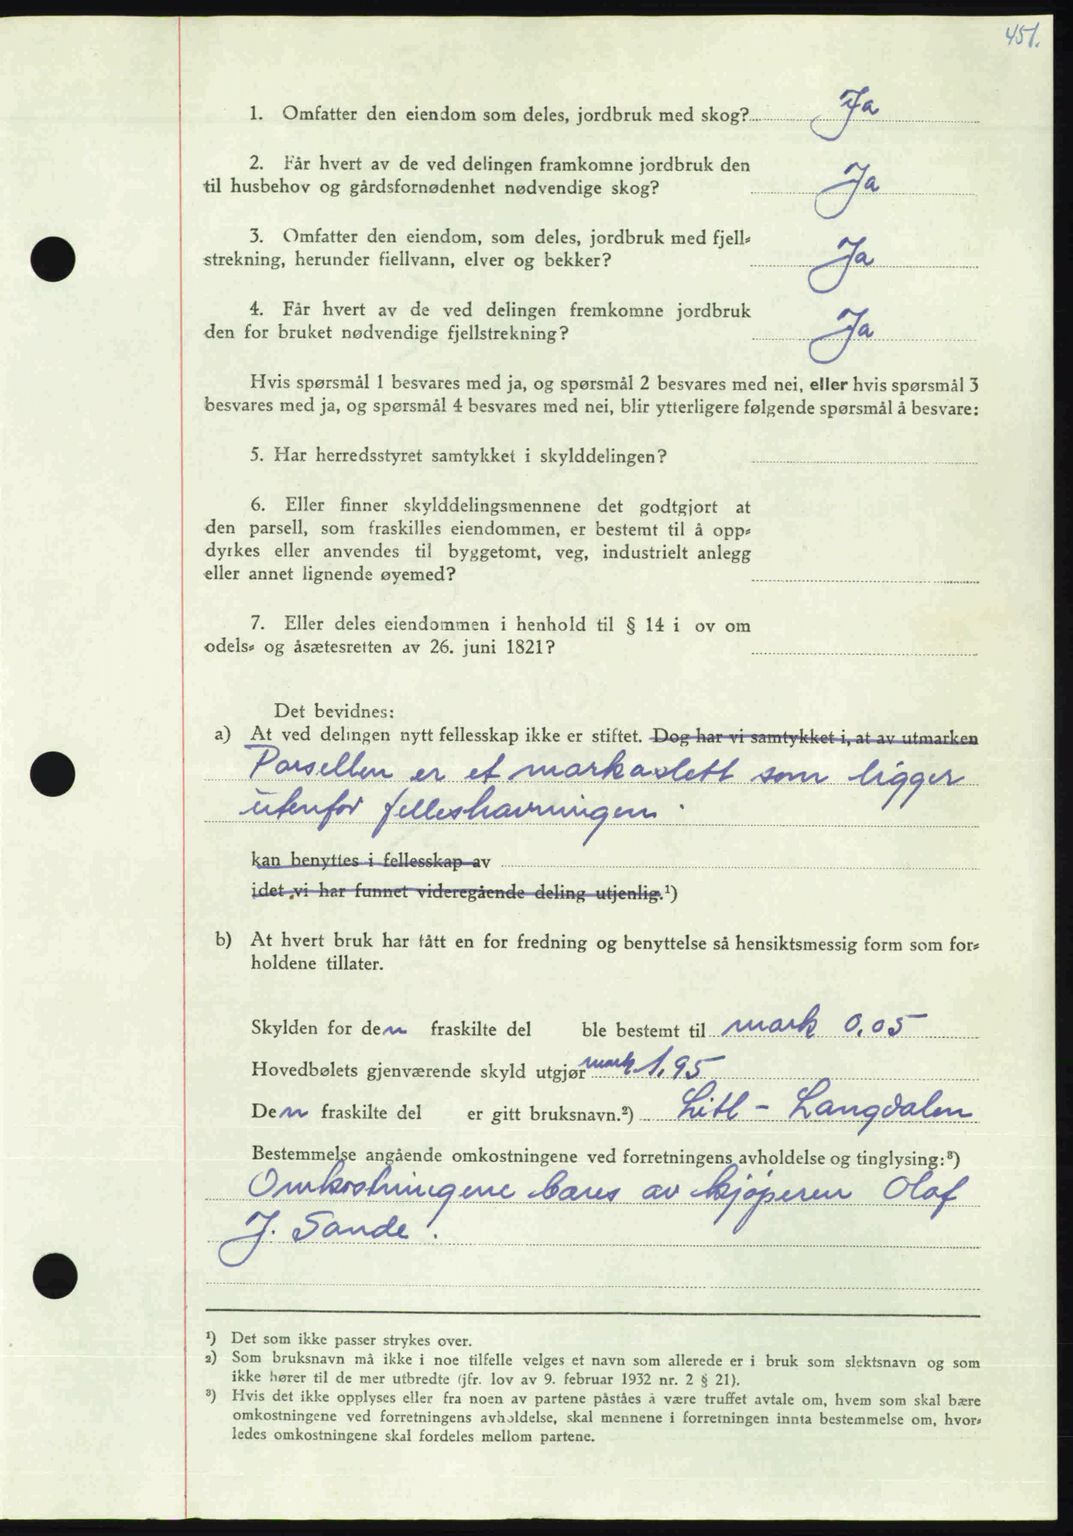 451.
1. Omfatter den eiendom som deles, jordbruk med skog? Ja
2. Får hvert av de ved delingen framkomne jordbruk den
til husbehov og gårdsfornødenhet nødvendige skog? Ja
3. Omfatter den eiendom, som deles, jordbruk med fjell-
strekning, herunder fiellvann, elver og bekker? Ja
4. Får hvert av de ved delingen fremkomne jordbruk
den for bruket nødvendige fjellstrekning? Ja
Hvis spørsmål 1 besvares med ja, og spørsmål 2 besvares med nei, eller hvis spørsmål 3
besvares med ja, og spørsmål 4 besvares med nei, blir ytterligere følgende spørsmål å besvare:
5. Har herredsstyret samtykket i skylddelingen?
6. Eller finner skylddelingsmennene det godtgjort at
den parsell, som fraskilles eiendommen, er bestemt til å opp-
dyrkes eller anvendes til byggetomt, veg, industrielt anlegg
eller annet lignende øyemed?
7. Eller deles eiendommen i henhold til § 14 i ov om
odels- og åsætesretten av 26. juni 1821?
Det bevidnes:
a) At ved delingen nytt fellesskap ikke er stiftet. Dog har vi samtykket i, at av utmarken
Parsellen er et markaslett som ligger
utenfor felleshavningen.
kan benyttes i fellesskap av
idet vi har funnet videregående deling utjenlig.¹)
b) At hvert bruk har fått en for fredning og benyttelse så hensiktsmessig form som for-
holdene tillater.
Skylden for den fraskilte del ble bestemt til mark 0,05
Hovedbølets gjenværende skyld utgjør mark 1,95
Den fraskilte del er gitt bruksnavn.²) Litl - Langdalen
Bestemmelse angående omkostningene ved forretningens avholdelse og tinglysing:³)
Omkostningene bæres av kjøperen Olaf
J. Sande.
¹) Det som ikke passer strykes over.
²) Som bruksnavn må ikke i noe tilfelle velges et navn som allerede er i bruk som slektsnavn og som
ikke hører til de mer utbredte (jfr. lov av 9. februar 1932 nr. 2 § 21).
³) Hvis det ikke opplyses eller fra noen av partene påståes å være truffet avtale om, hvem som skal bære
omkostningene ved forretningens avholdelse, skal mennene i forretningen innta bestemmelse om, hvor-
ledes omkostningene skal fordeles mellom partene.